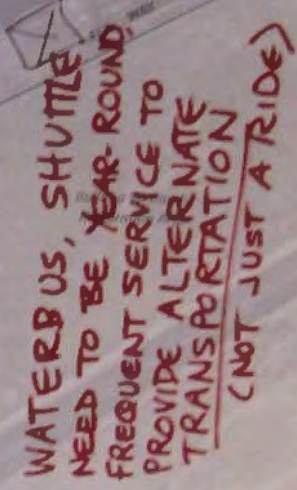 WATERBUS, SHUTTLE
NEED TO BE YEAR-ROUND,
FREQUENT SERVICE TO
PROVIDE ALTERNATE
TRANSPORTATION
(NOT JUST A RIDE)